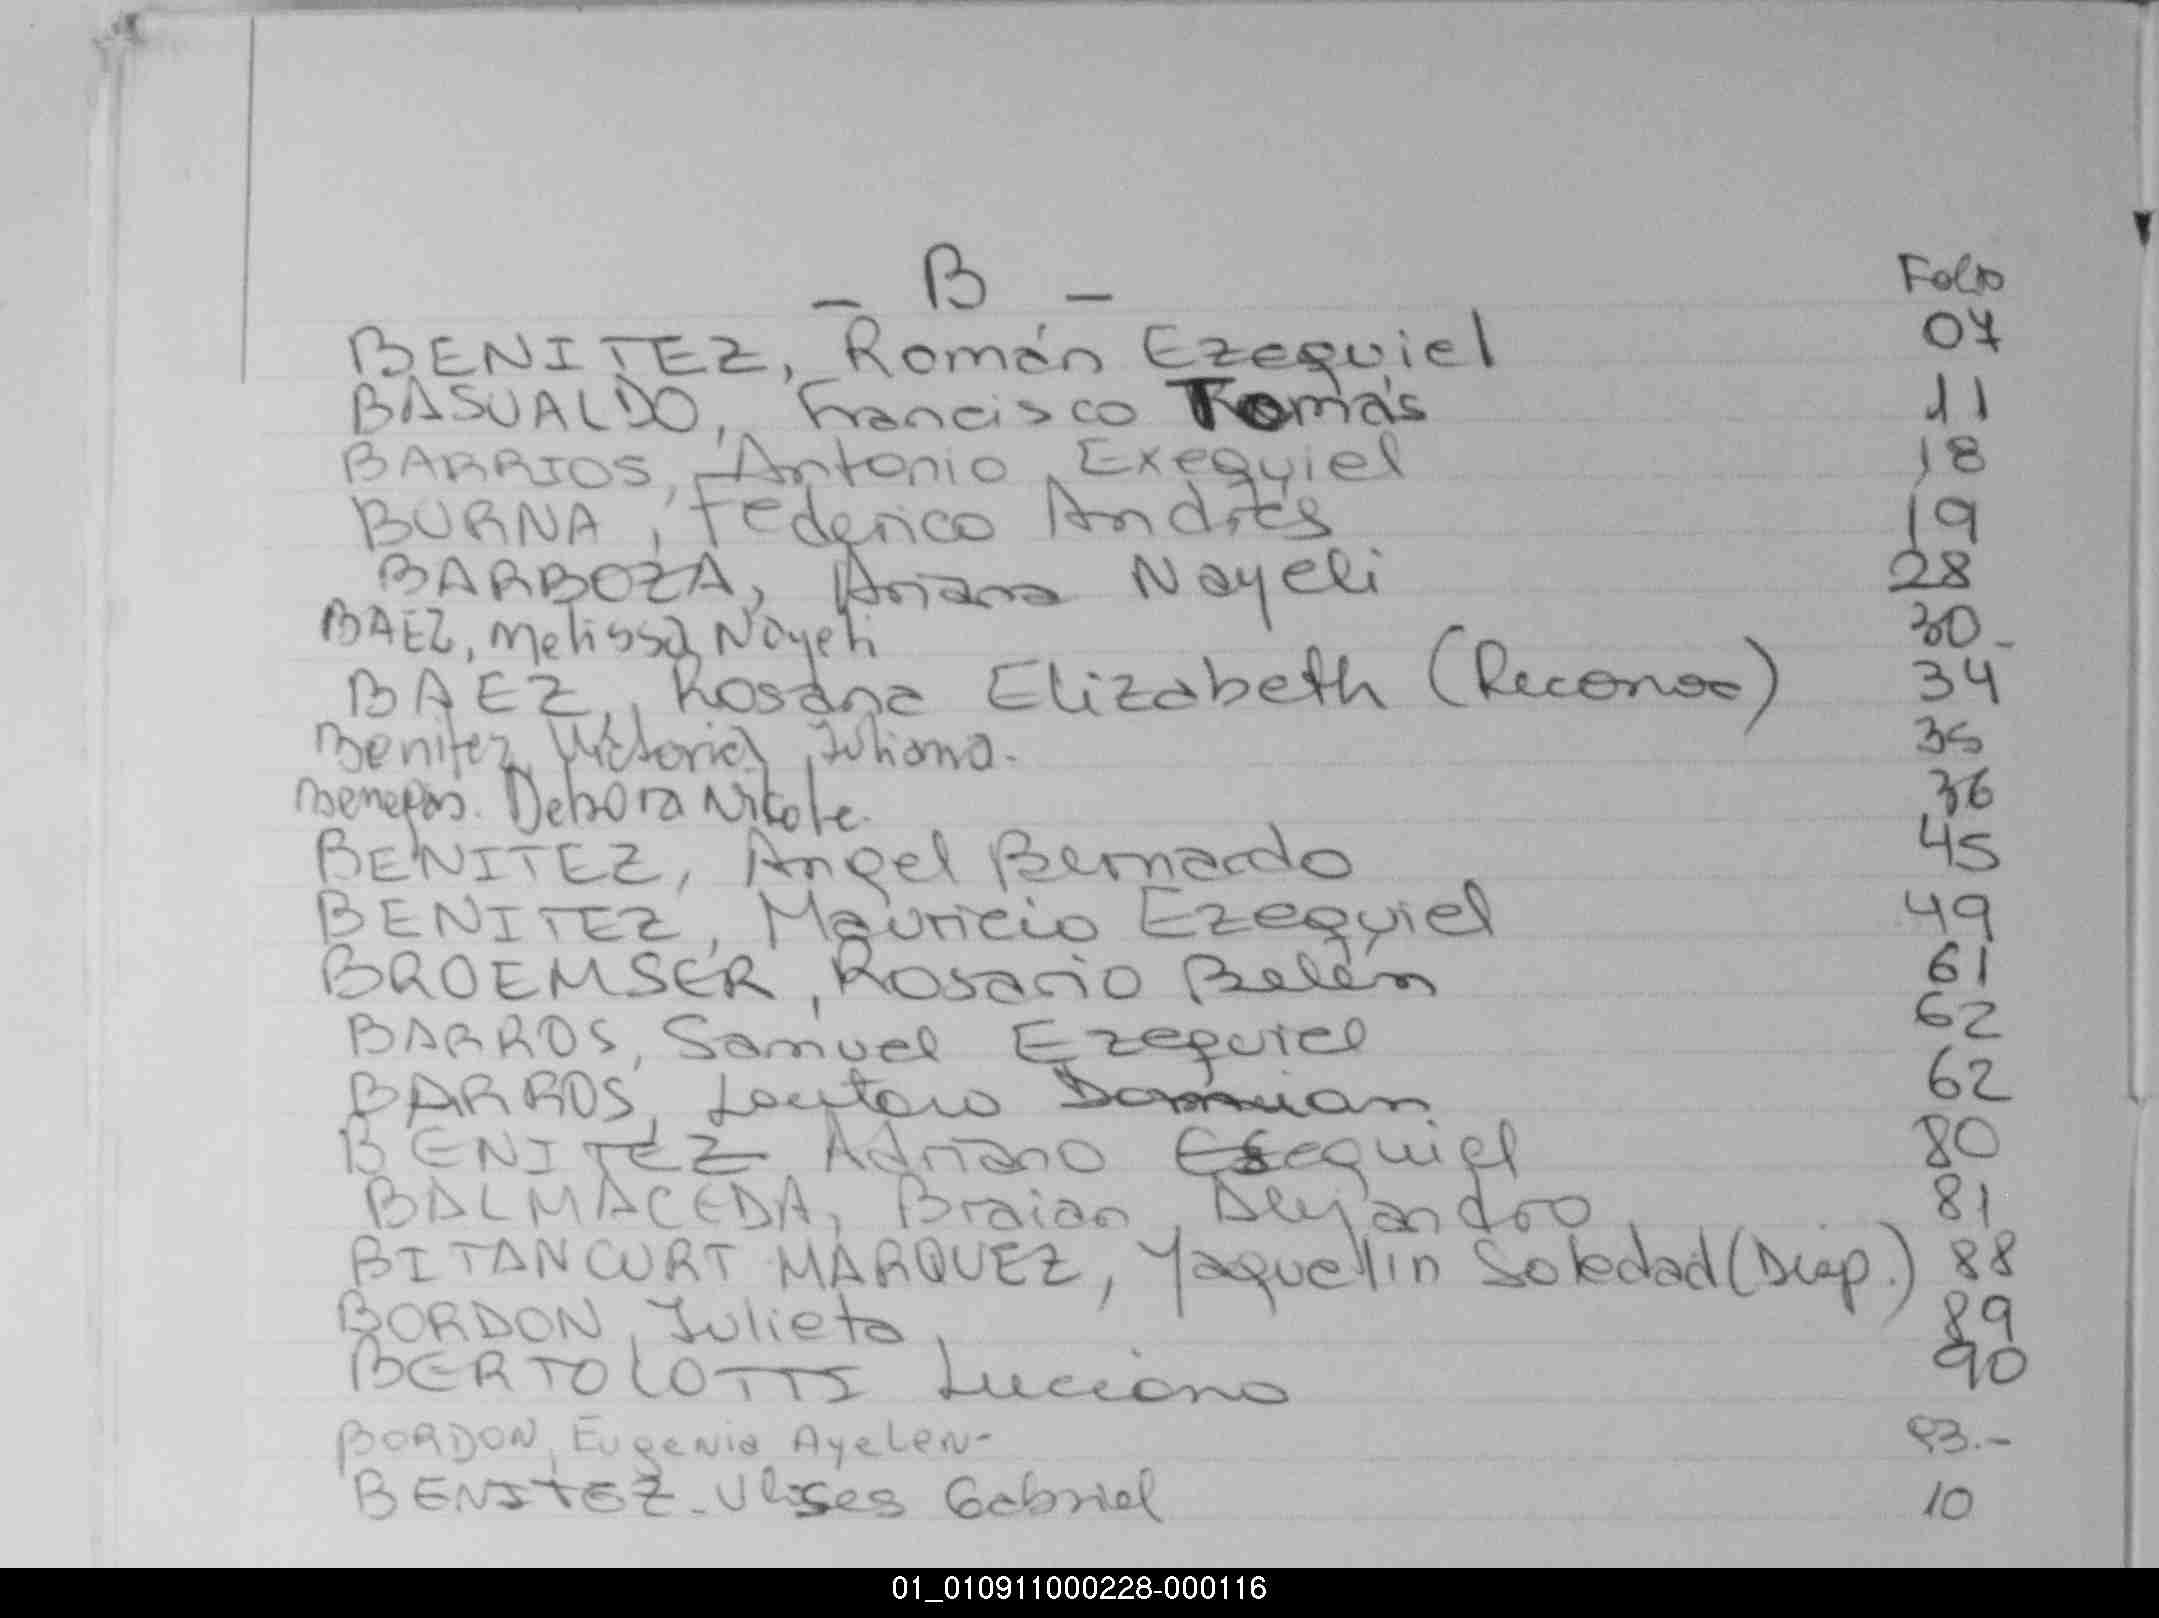 - B - Folio
BENITEZ, Román Ezequiel 07
BASUALDO, Francisco Tomás 11
BARRIOS, Antonio Exequiel 18
BURNA, Federico Andrés 19
BARBOZA, Ariana Nayeli 28
BAEZ, Melissa Nayeli 30-
BAEZ, Rosana Elizabeth (Reconoc) 34
Benitez, Victoria Juliana. 35
Debora Nikole. 36
BENITEZ, Angel Bernardo 45
BENITEZ, Mauricio Ezequiel 49
BROEMSER, Rosario Belén 61
BARROS, Samuel Ezequiel 62
BARROS, Lautaro Damian 62
BENITEZ Adriano Esequiel 80
BALMACEDA, Braian Alejandro 81
BITANCURT MARQUEZ, Yaquelin Soledad (Disp.) 88
BORDON, Julieta 89
BERTOLOTTI Luciano 90
BORDON, Eugenia Ayelen- 93.-
BENITEZ-Ulises Gabriel 10
01_010911000228-000116